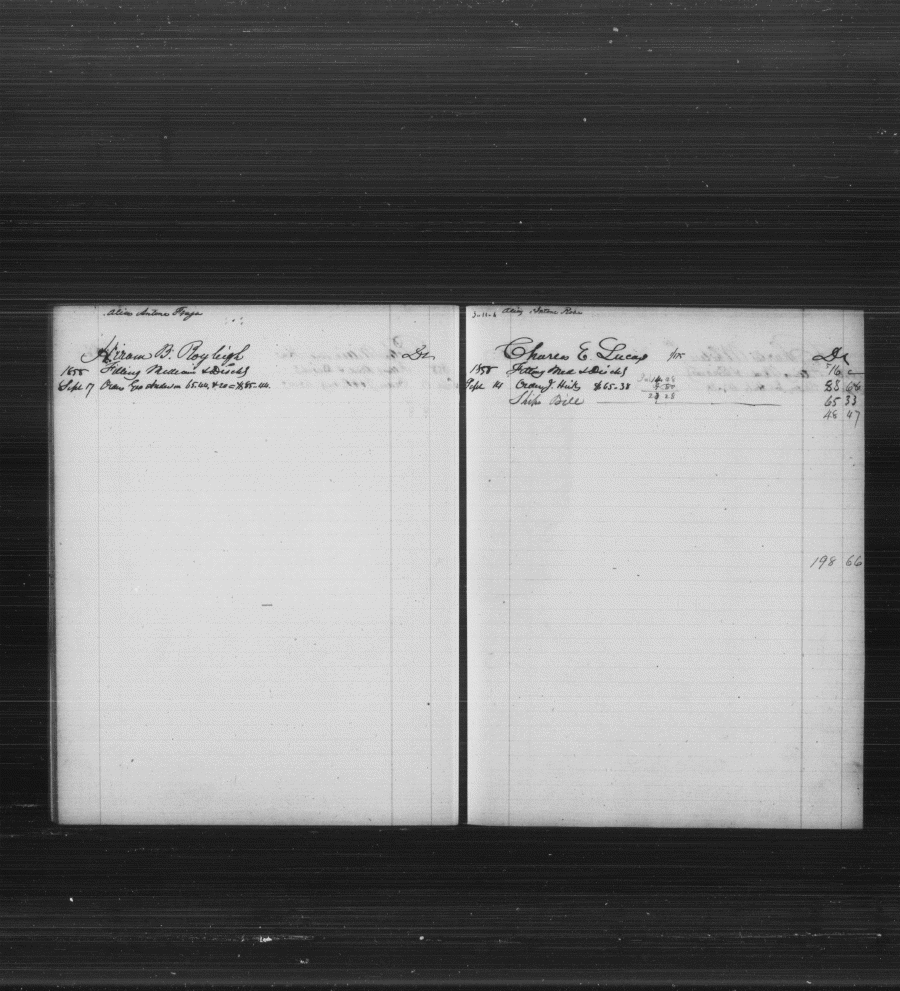 Alias Antone Fraga
Hiram B. Rayleigh Dr
1858 Fitting Medicine & Disch
Sept 17 Order Geo Anderson 65.44 + 20 = $85.44
Alias Antone Rosa
Charles E. Lucas Dr
1858 Fitting Med & Disch 16
Sept 14 Order J. Hicks $65.33
23 28
Ships Bill
65 33
48 47
198 66